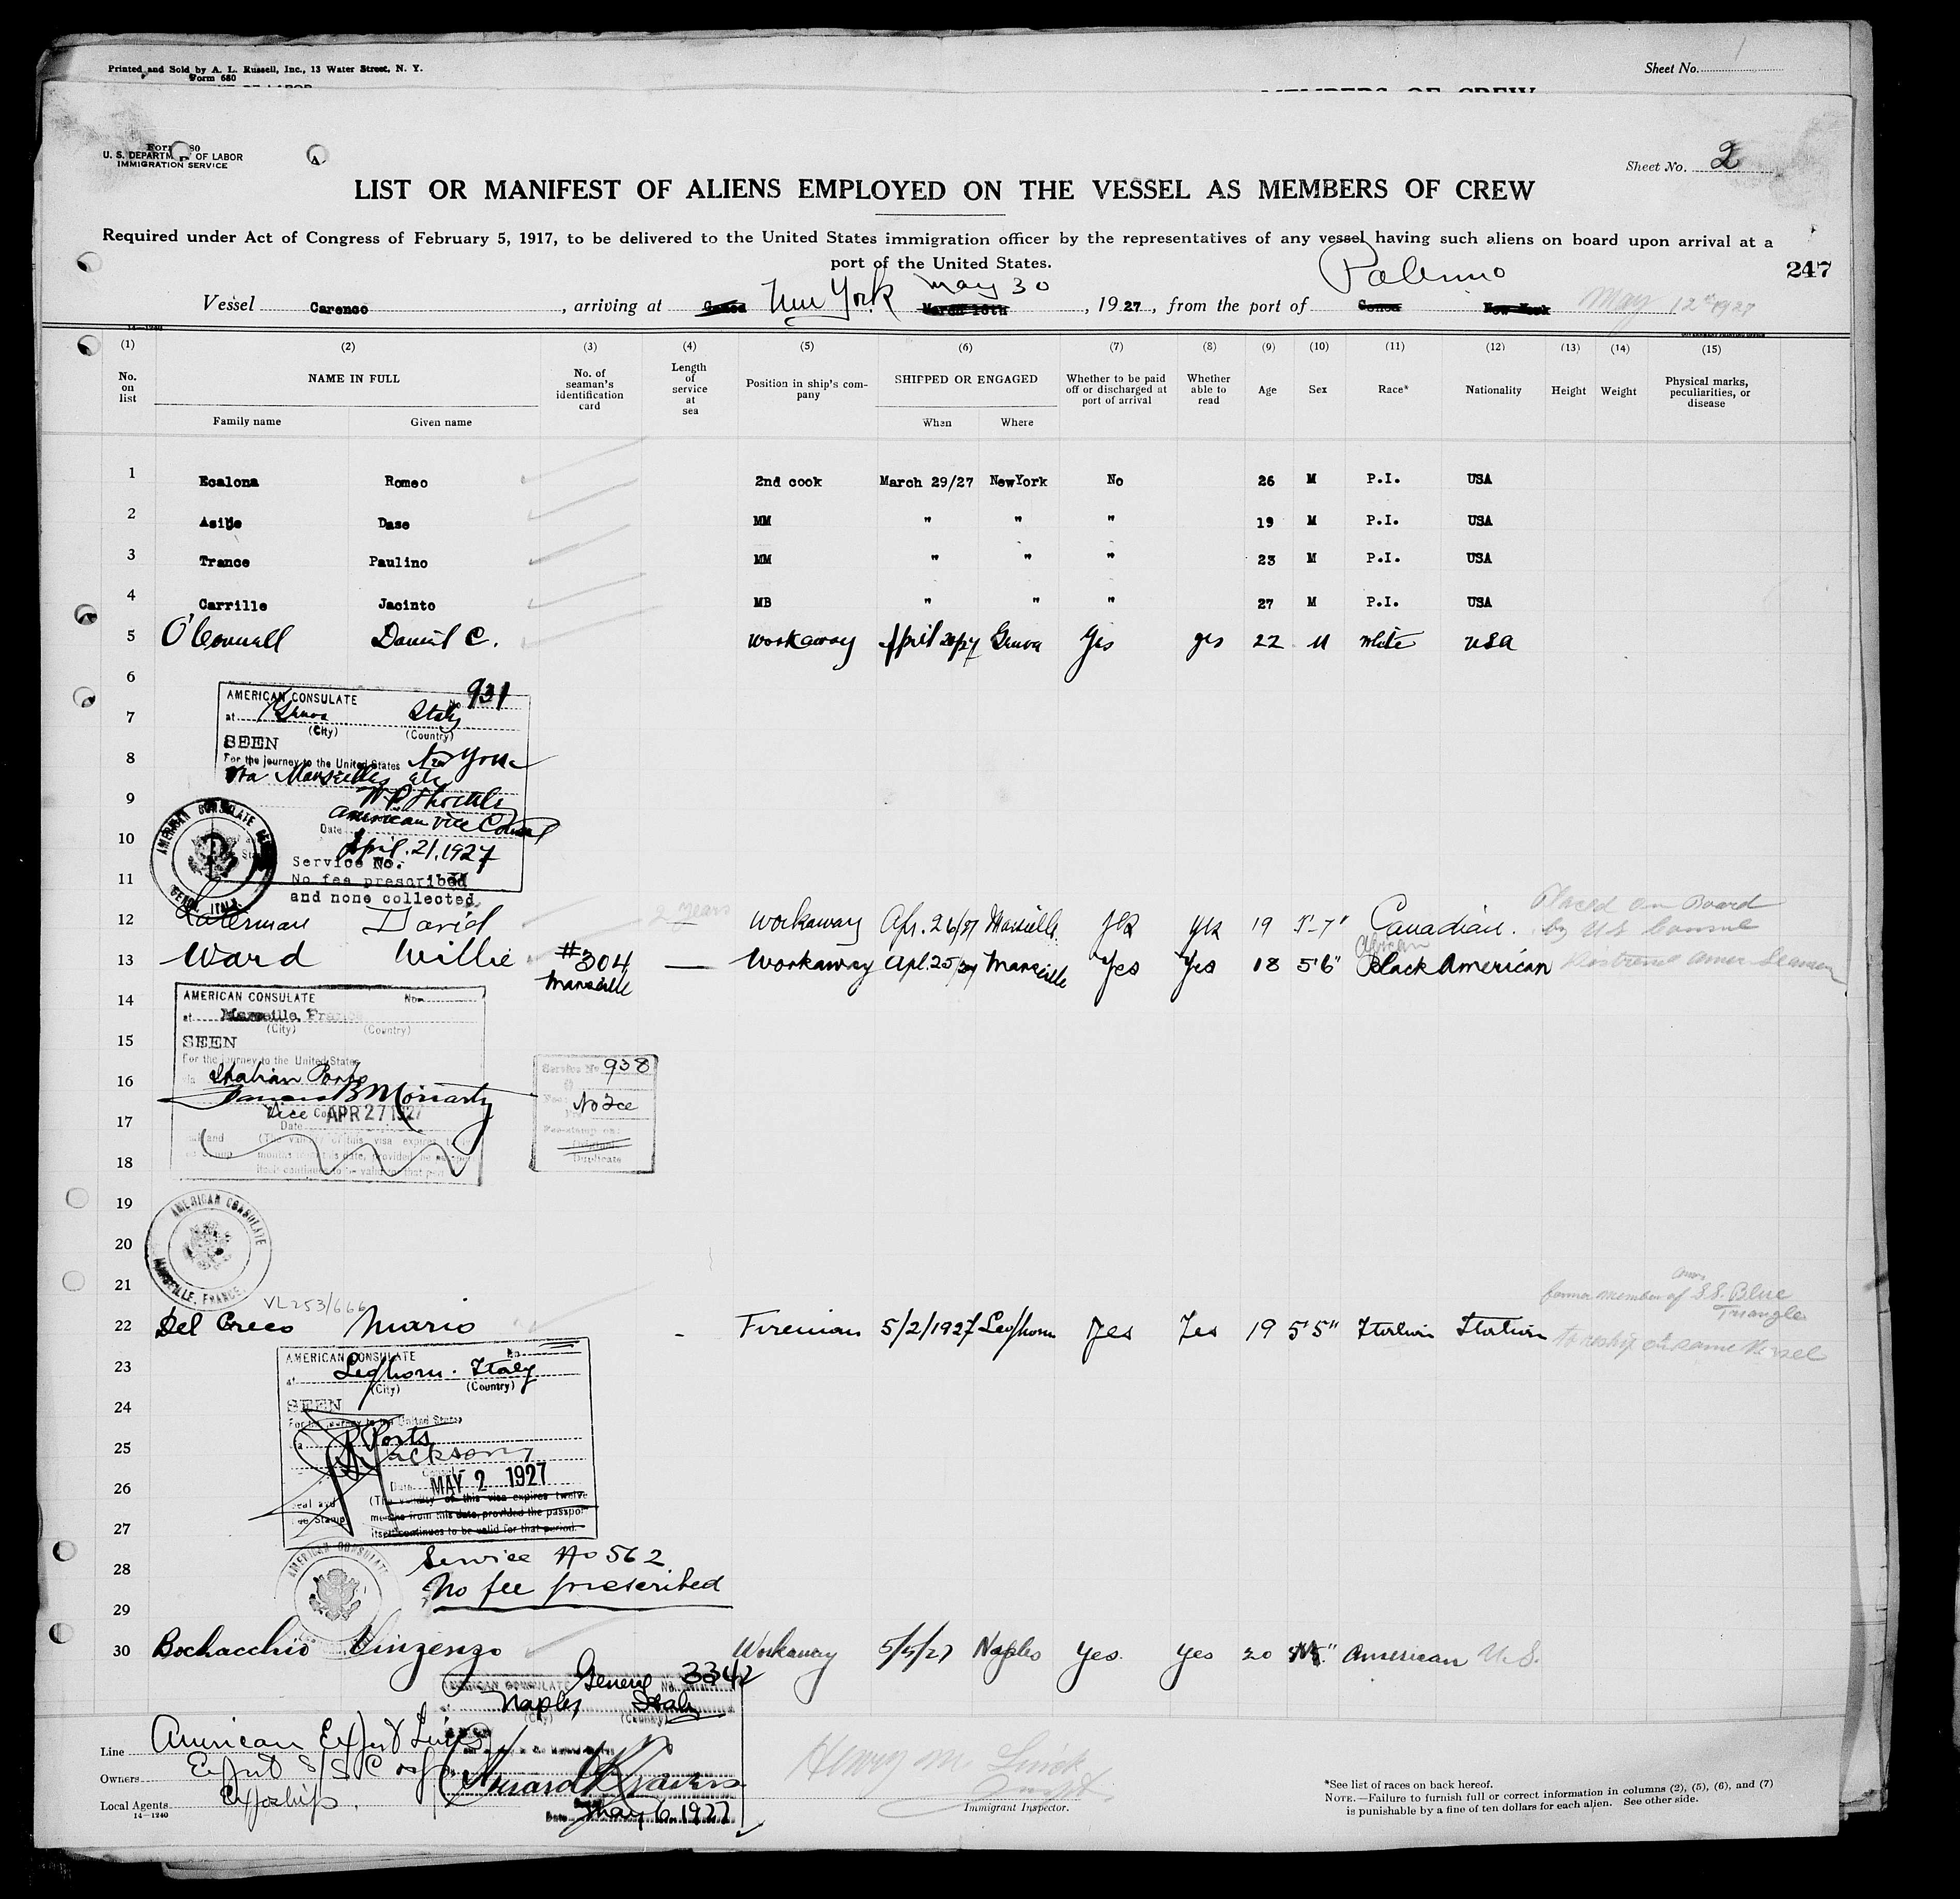 Printed and Sold by A. L. Russell, Inc., 13 Water Street, N. Y.
Form 680
Sheet No.
MEMBERS OF CREW
U. S. DEPARTMENT OF LABOR
IMMIGRATION SERVICE
Sheet No. 2
LIST OR MANIFEST OF ALIENS EMPLOYED ON THE VESSEL AS MEMBERS OF CREW
Required under Act of Congress of February 5, 1917, to be delivered to the United States immigration officer by the representatives of any vessel having such aliens on board upon arrival at a
port of the United States.
247
Vessel Carenco, arriving at Genoa New York May 30 March 16th, 1927, from the port of Palermo Genoa New York May 12th 1927
14—1240
(1) (2) (3) (4) (5) (6) (7) (8) (9) (10) (11) (12) (13) (14) (15)
No. on list NAME IN FULL Family name Given name No. of seaman's identification card Length of service at sea Position in ship's company SHIPPED OR ENGAGED When Where Whether to be paid off or discharged at port of arrival Whether able to read Age Sex Race* Nationality Height Weight Physical marks, peculiarities, or disease
1 Ecalona Romeo 2nd cook March 29/27 NewYork No 26 M P.I. USA
2 Dase MM " " " 19 M P.I. USA
3 Trance Paulino MM " " " 23 M P.I. USA
4 Carrille Jacinto MB " " " 27 M P.I. USA
5 O'Connell Daniel C. Workaway April 20/27 Genoa Yes yes 22 M White USA
6
AMERICAN CONSULATE No 931
7 at Genoa Italy
(City) (Country)
SEEN
8 For the journey to the United States New York
via Marseilles etc
9
American Vice Consul
10 Date April. 21. 1927
Service No.
11 No fee prescribed
and none collected
AMERICAN CONSULATE GENERAL GENOA, ITALY.
12 Laterman David 2 years Workaway Apr. 26/27 Marseille. yes yes 19 5'-7" Canadian. Placed on Board
by US Consul
13 Ward Willie #304 Marseille — Workaway Apl. 25/27 Marseille Yes Yes 18 5'6" African Black American Amer Seaman
14 AMERICAN CONSULATE No.
at Marseille, France
(City) (Country)
15 SEEN
For the journey to the United States
16 via Italian Ports
B Moriarty
Vice Consul APR 27 1927
17 Date
(The validity of this visa expires
18 months from this date, provided
Service No 938
No Fee
Fee-stamp on:
Original
Duplicate
19
20
21
AMERICAN CONSULATE MARSEILLE, FRANCE.
VL 253/666
22 Del Greco Mario - Fireman 5/2/1927 Leghorn Yes Yes 19 5'5" Italian Italian former member of Am. S.S. Blue
Triangle
to reship on same Vessel
23 AMERICAN CONSULATE No.
at Leghorn. Italy
(City) (Country)
24 SEEN
For the journey to the United States
25 Ports
Jackson
26 Date MAY 2 1927
Seal and Fee Stamp (The validity of this visa expires twelve
27 months from this date, provided the passport
itself continues to be valid for that period.
AMERICAN CONSULATE
Service No 562
28 No fee prescribed
29
30 Bochacchio Vinzenzo Workaway 5/5/27 Naples Yes. yes 20 American U.S.
General 3342
AMERICAN CONSULATE No.
Naples Italy
(City) (Country)
Line American Export Lines
Owners Export S/S Corp.
Local Agents Expoships.
14—1240
Date May 6 1927
Henry M.
Immigrant Inspector.
*See list of races on back hereof.
NOTE.—Failure to furnish full or correct information in columns (2), (5), (6), and (7)
is punishable by a fine of ten dollars for each alien. See other side.